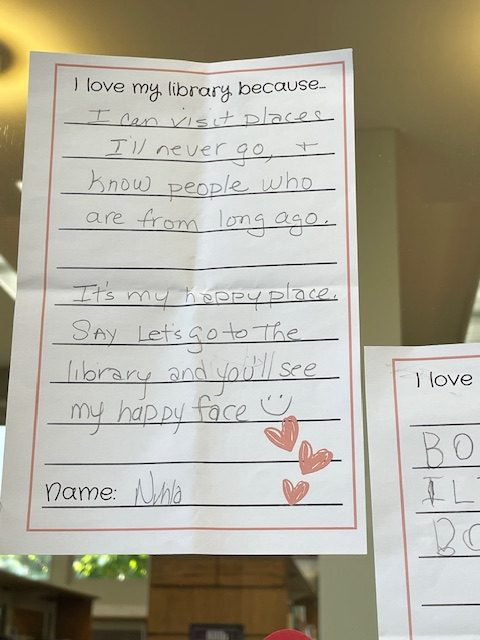 I love my library because...
I can visit places
I'll never go, +
know people who
are from long ago.
It's my happy place.
SAY Let's go to The
library and you'll see
my happy face
name:
I love
BO
BO